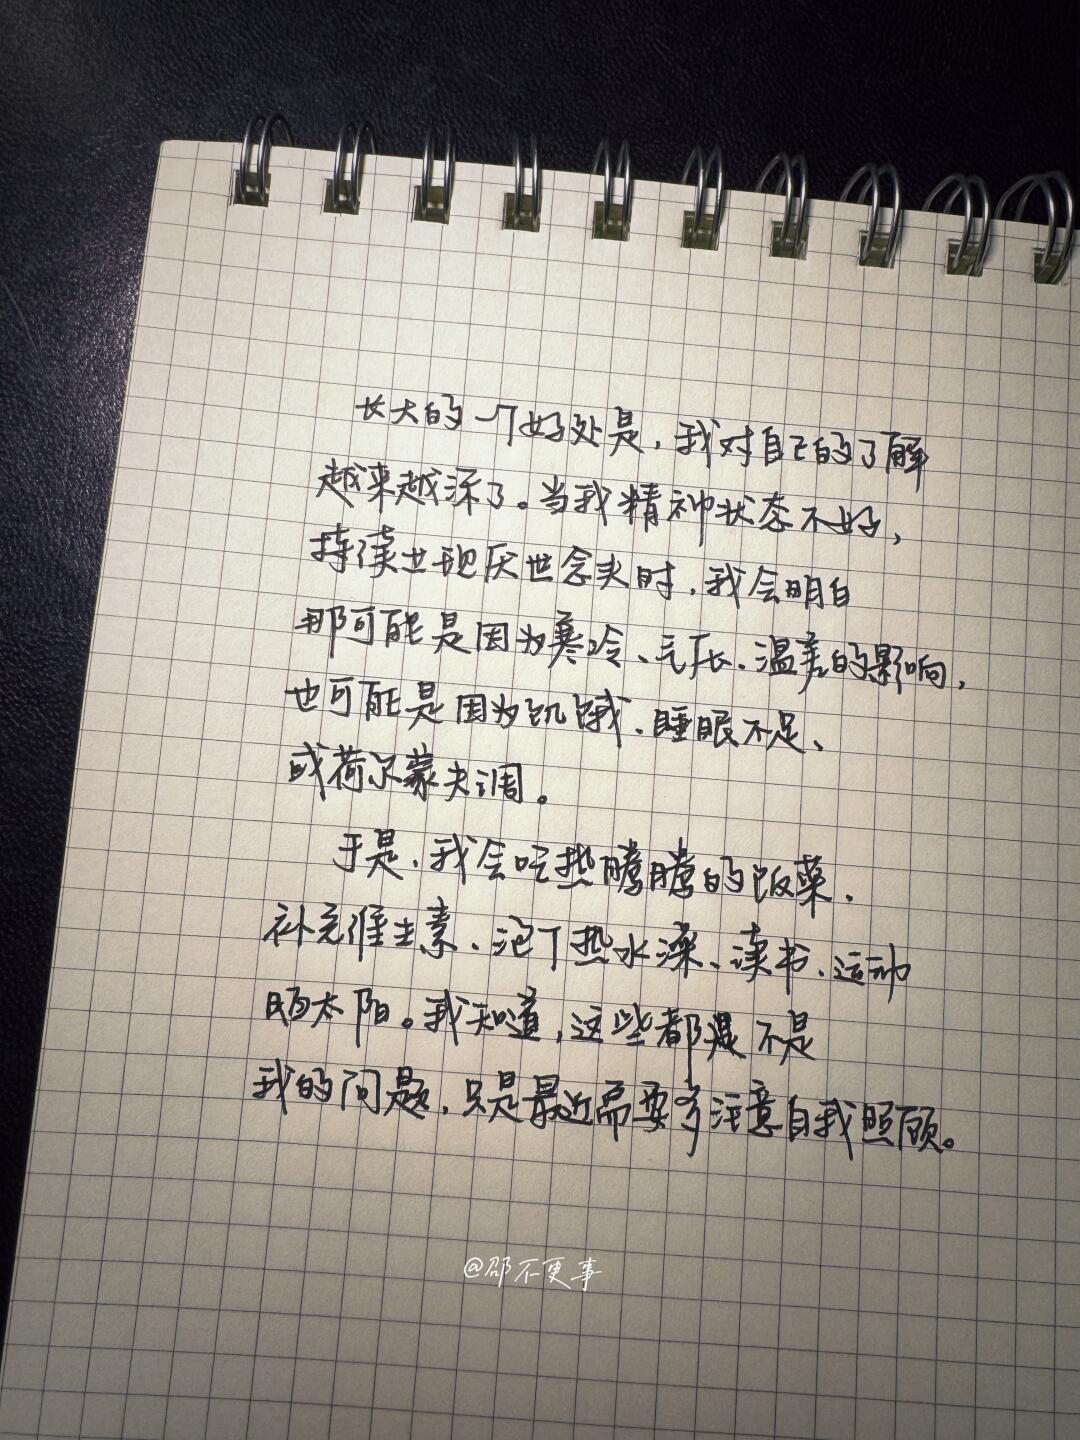 长大的一个好处是，我对自己的了解
越来越深了。当我精神状态不好，
持续出现厌世念头时，我会明白
那可能是因为寒冷、气压、温差的影响，
也可能是因为饥饿、睡眠不足、
或荷尔蒙失调。
于是，我会吃热腾腾的饭菜、
补充维生素、泡个热水澡、读书、运动
晒太阳。我知道，这些都是不是
我的问题，只是最近需要多注意自我照顾。
@邵不更事